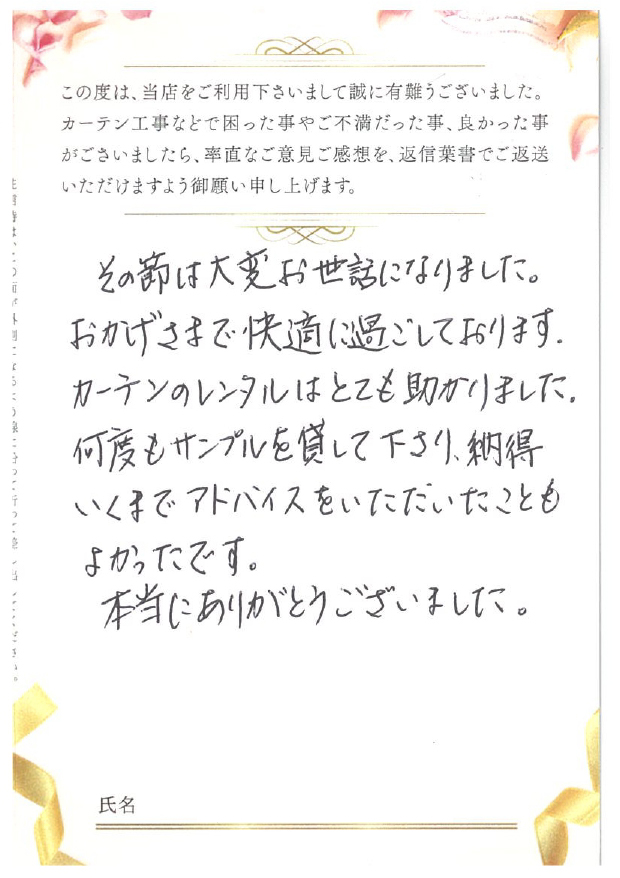 この度は、当店をご利用下さいまして誠に有難うございました。
カーテン工事などで困った事やご不満だった事、良かった事
がございましたら、率直なご意見ご感想を、返信葉書でご返送
いただけますよう御願い申し上げます。
その節は大変お世話になりました。
おかげさまで快適に過ごしております.
カーテンのレンタルはとても助かりました.
何度もサンプルを貸して下さり、納得
いくまでアドバイスをいただいたことも
よかったです。
本当にありがとうございました。
氏名